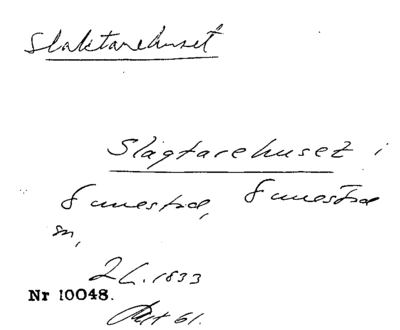 Slaktarehuset
Slägtarehuset i
Gunestad, Gunestad
sn,
2/6. 1833
Nr 10048.
61.